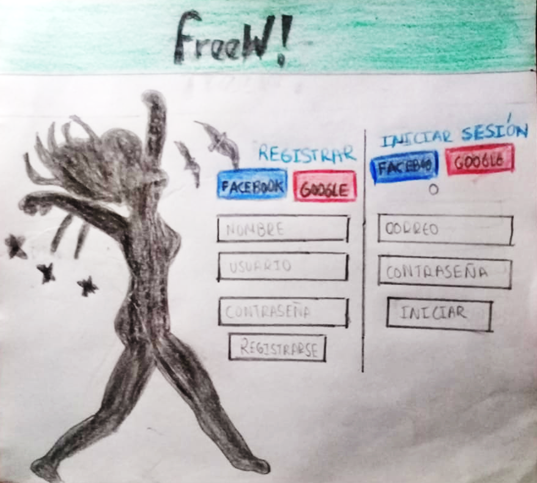 freeW!
REGISTRAR
FACEBOOK GOOGLE
NOMBRE
USUARIO
CONTRASEÑA
REGISTRARSE
INICIAR SESIÓN
FACEBOO GOOGLE
O
CORREO
CONTRASEÑA
INICIAR